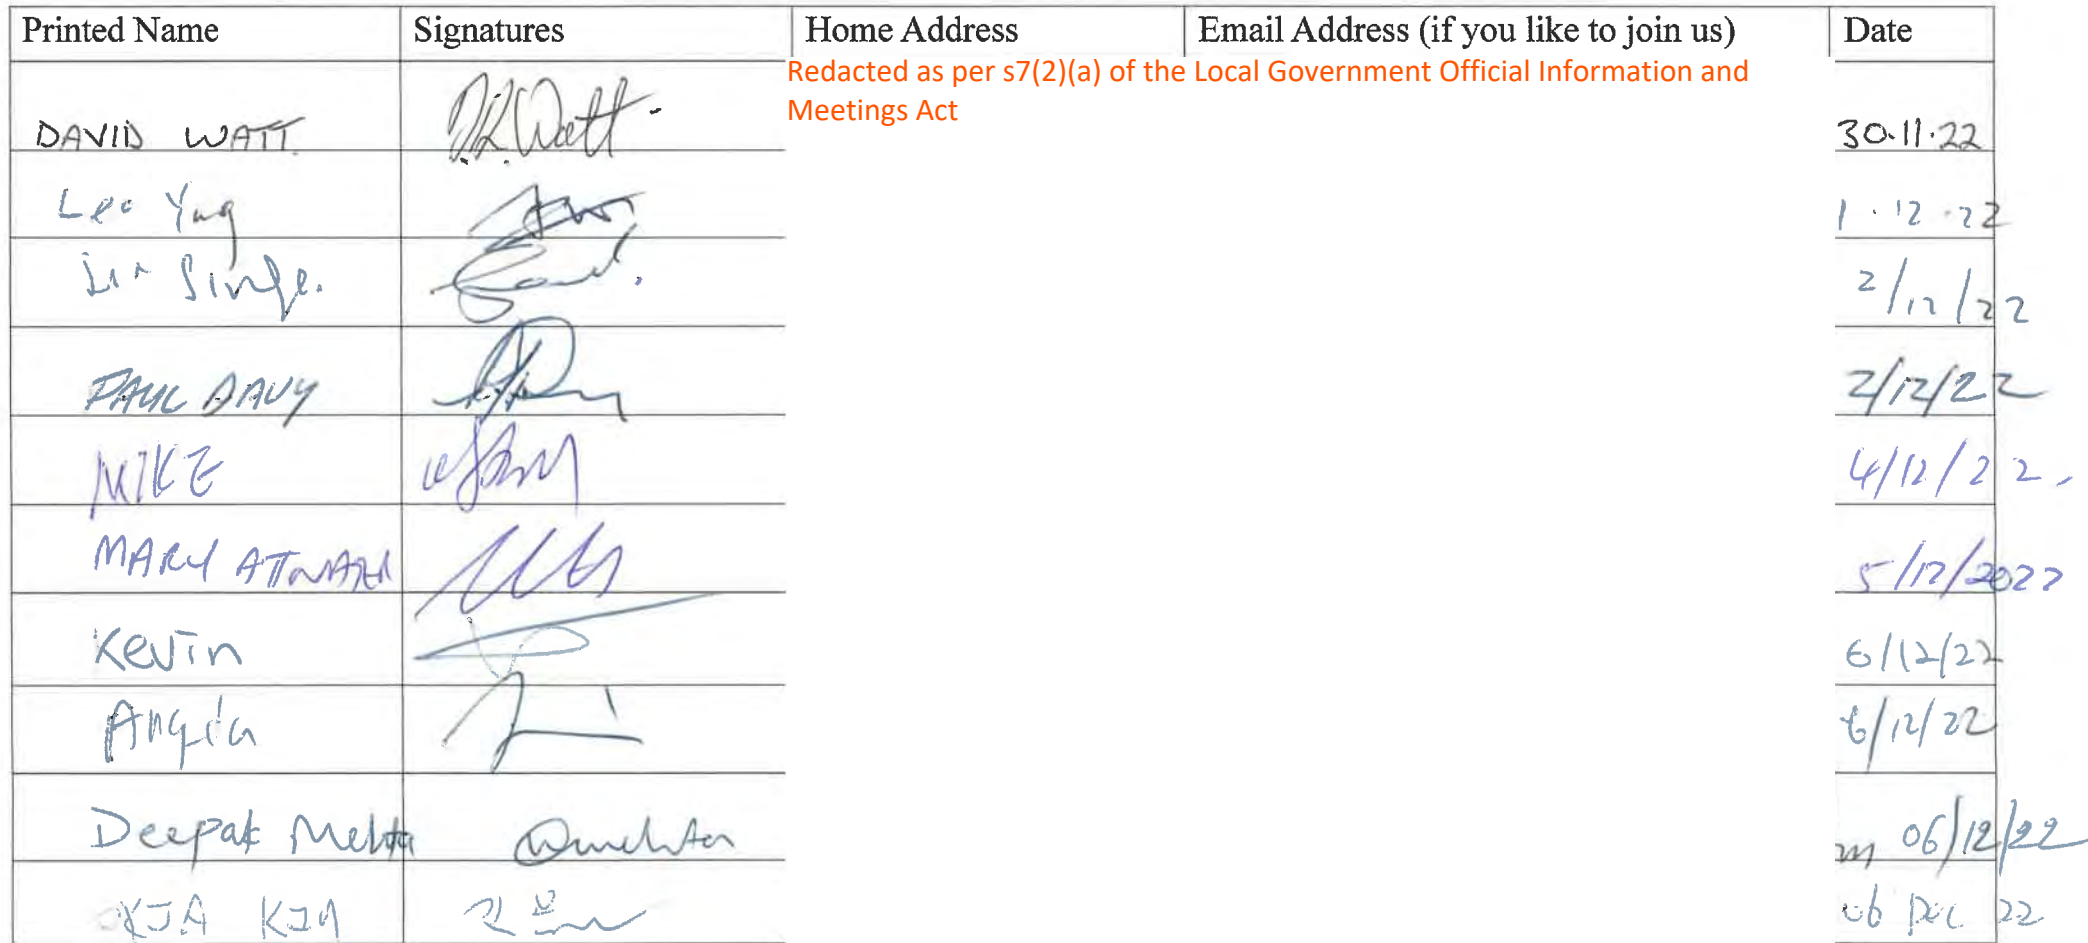 Printed Name Signatures Home Address Email Address (if you like to join us) Date
Redacted as per s7(2)(a) of the Local Government Official Information and
Meetings Act
DAVID WATT D.R.Watt 30.11.22
Leo Yang 1.12.22
Singh. 2/12/22
PAUL DAVY 2/12/22
MIKE 4/12/22
MARY ATTWATER 5/12/2022
Kevin 6/12/22
Angela 6/12/22
Deepak Mehta Dmehta 06/12/22
KIM 06 Dec 22